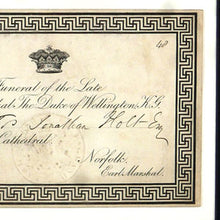 48
Funeral of the Late
The Duke of Wellington, K.G.
Jonathan Holt Esq
Cathedral.
Norfolk,
Earl Marshal.